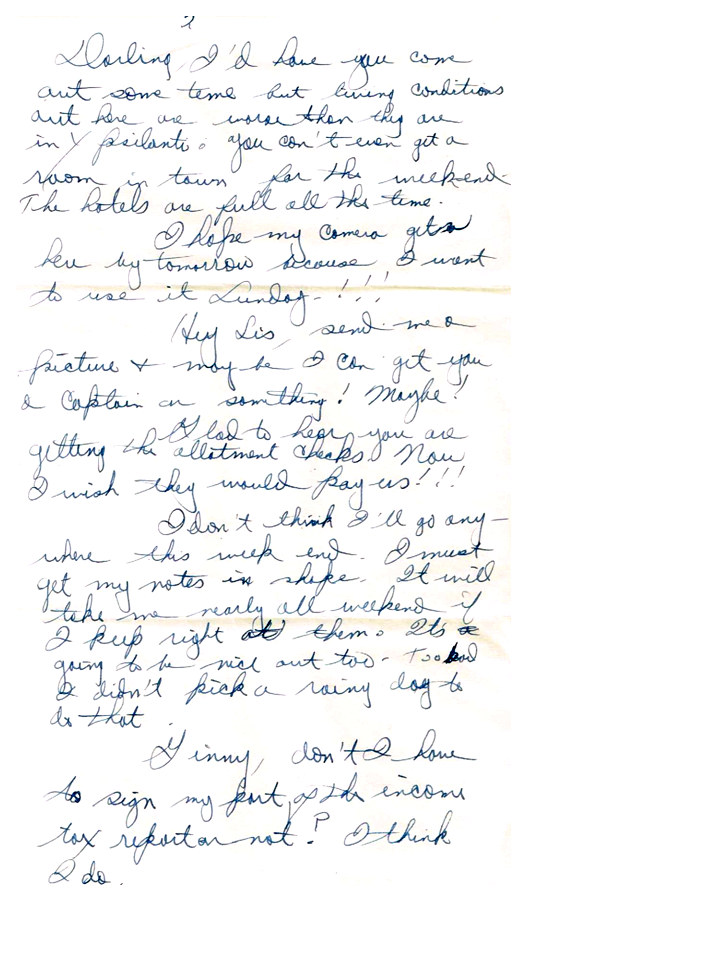 2
Darling, I'd have you come
out some time but living conditions
out here are worse than they are
in Ypsilanti. You can't even get a
room in town for the weekend.
The hotels are full all the time.
I hope my camera gets
here by tomorrow because I want
to use it Sunday-!!!
Hey Sis, send me a
picture & may be I can get you
a Captain or something! Maybe!
Glad to hear you are
getting the allotment checks. Now
I wish they would pay us!!!
I don't think I'll go any-
where this week end. I must
get my notes in shape. It will
take me nearly all weekend if
I keep right at them. Its
going to be nice out too- Too bad
I didn't pick a rainy day to
do that.
Ginny, don't I have
to sign my part of the income
tax report or not? I think
I do.